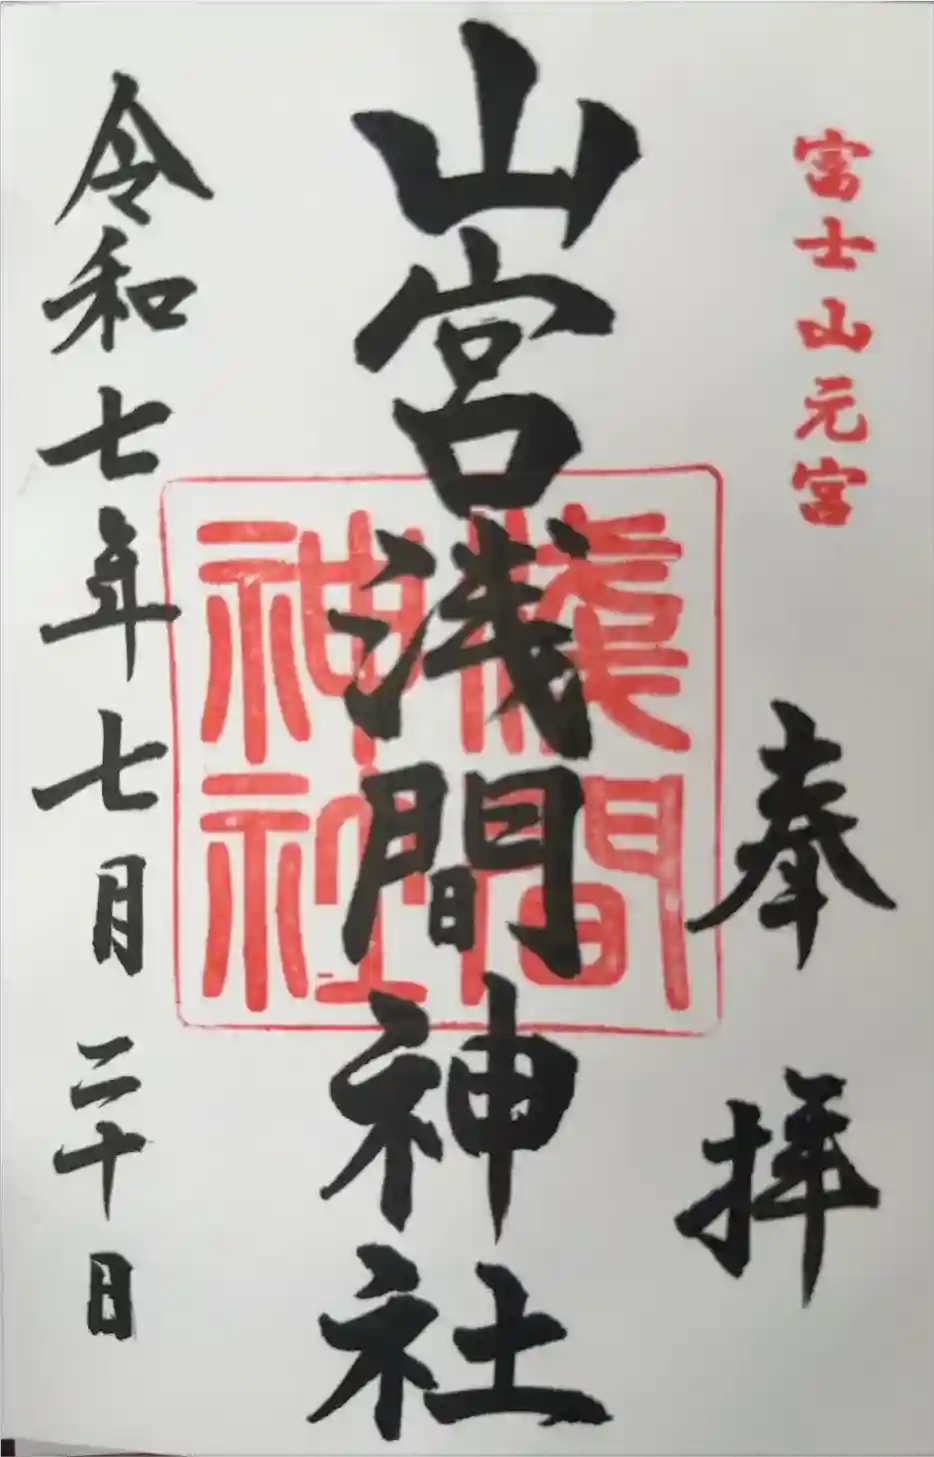 富士山元宮
奉拝
山宮浅間神社
淺間神社
令和七年七月二十日